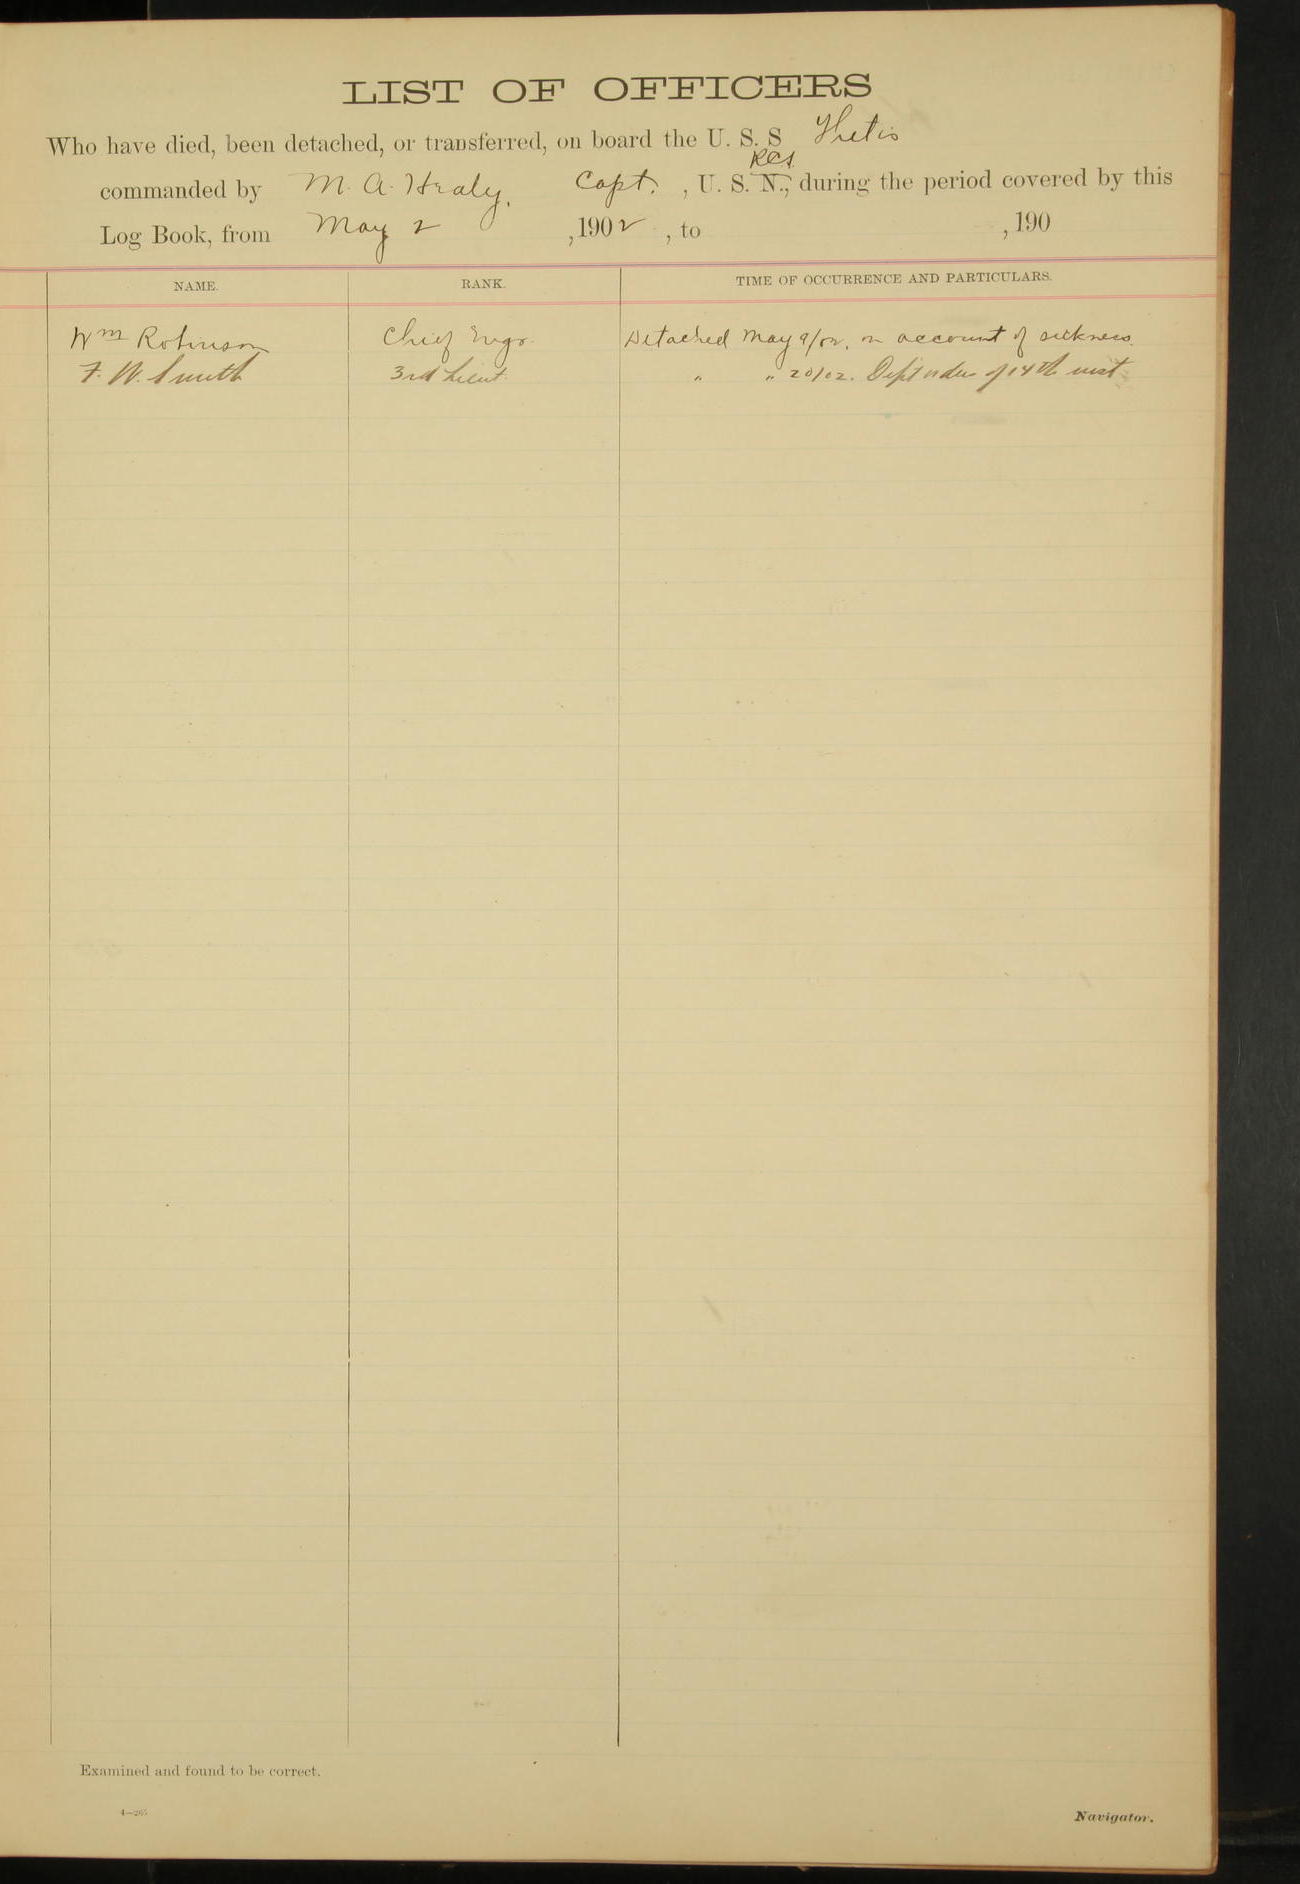 LIST OF OFFICERS
Who have died, been detached, or transferred, on board the U. S. S Thetis
RCS
commanded by M. A. Healy, Capt. , U. S. N., during the period covered by this
Log Book, from May 2 , 1902 , to , 190
NAME. RANK. TIME OF OCCURRENCE AND PARTICULARS.
Wm Robinson Chief Engr. Detached May 9/02, on account of sickness.
F. W. Smith 3rd Lieut. " " 20/02. Dept order of 14th inst
Examined and found to be correct.
4—265
Navigator.